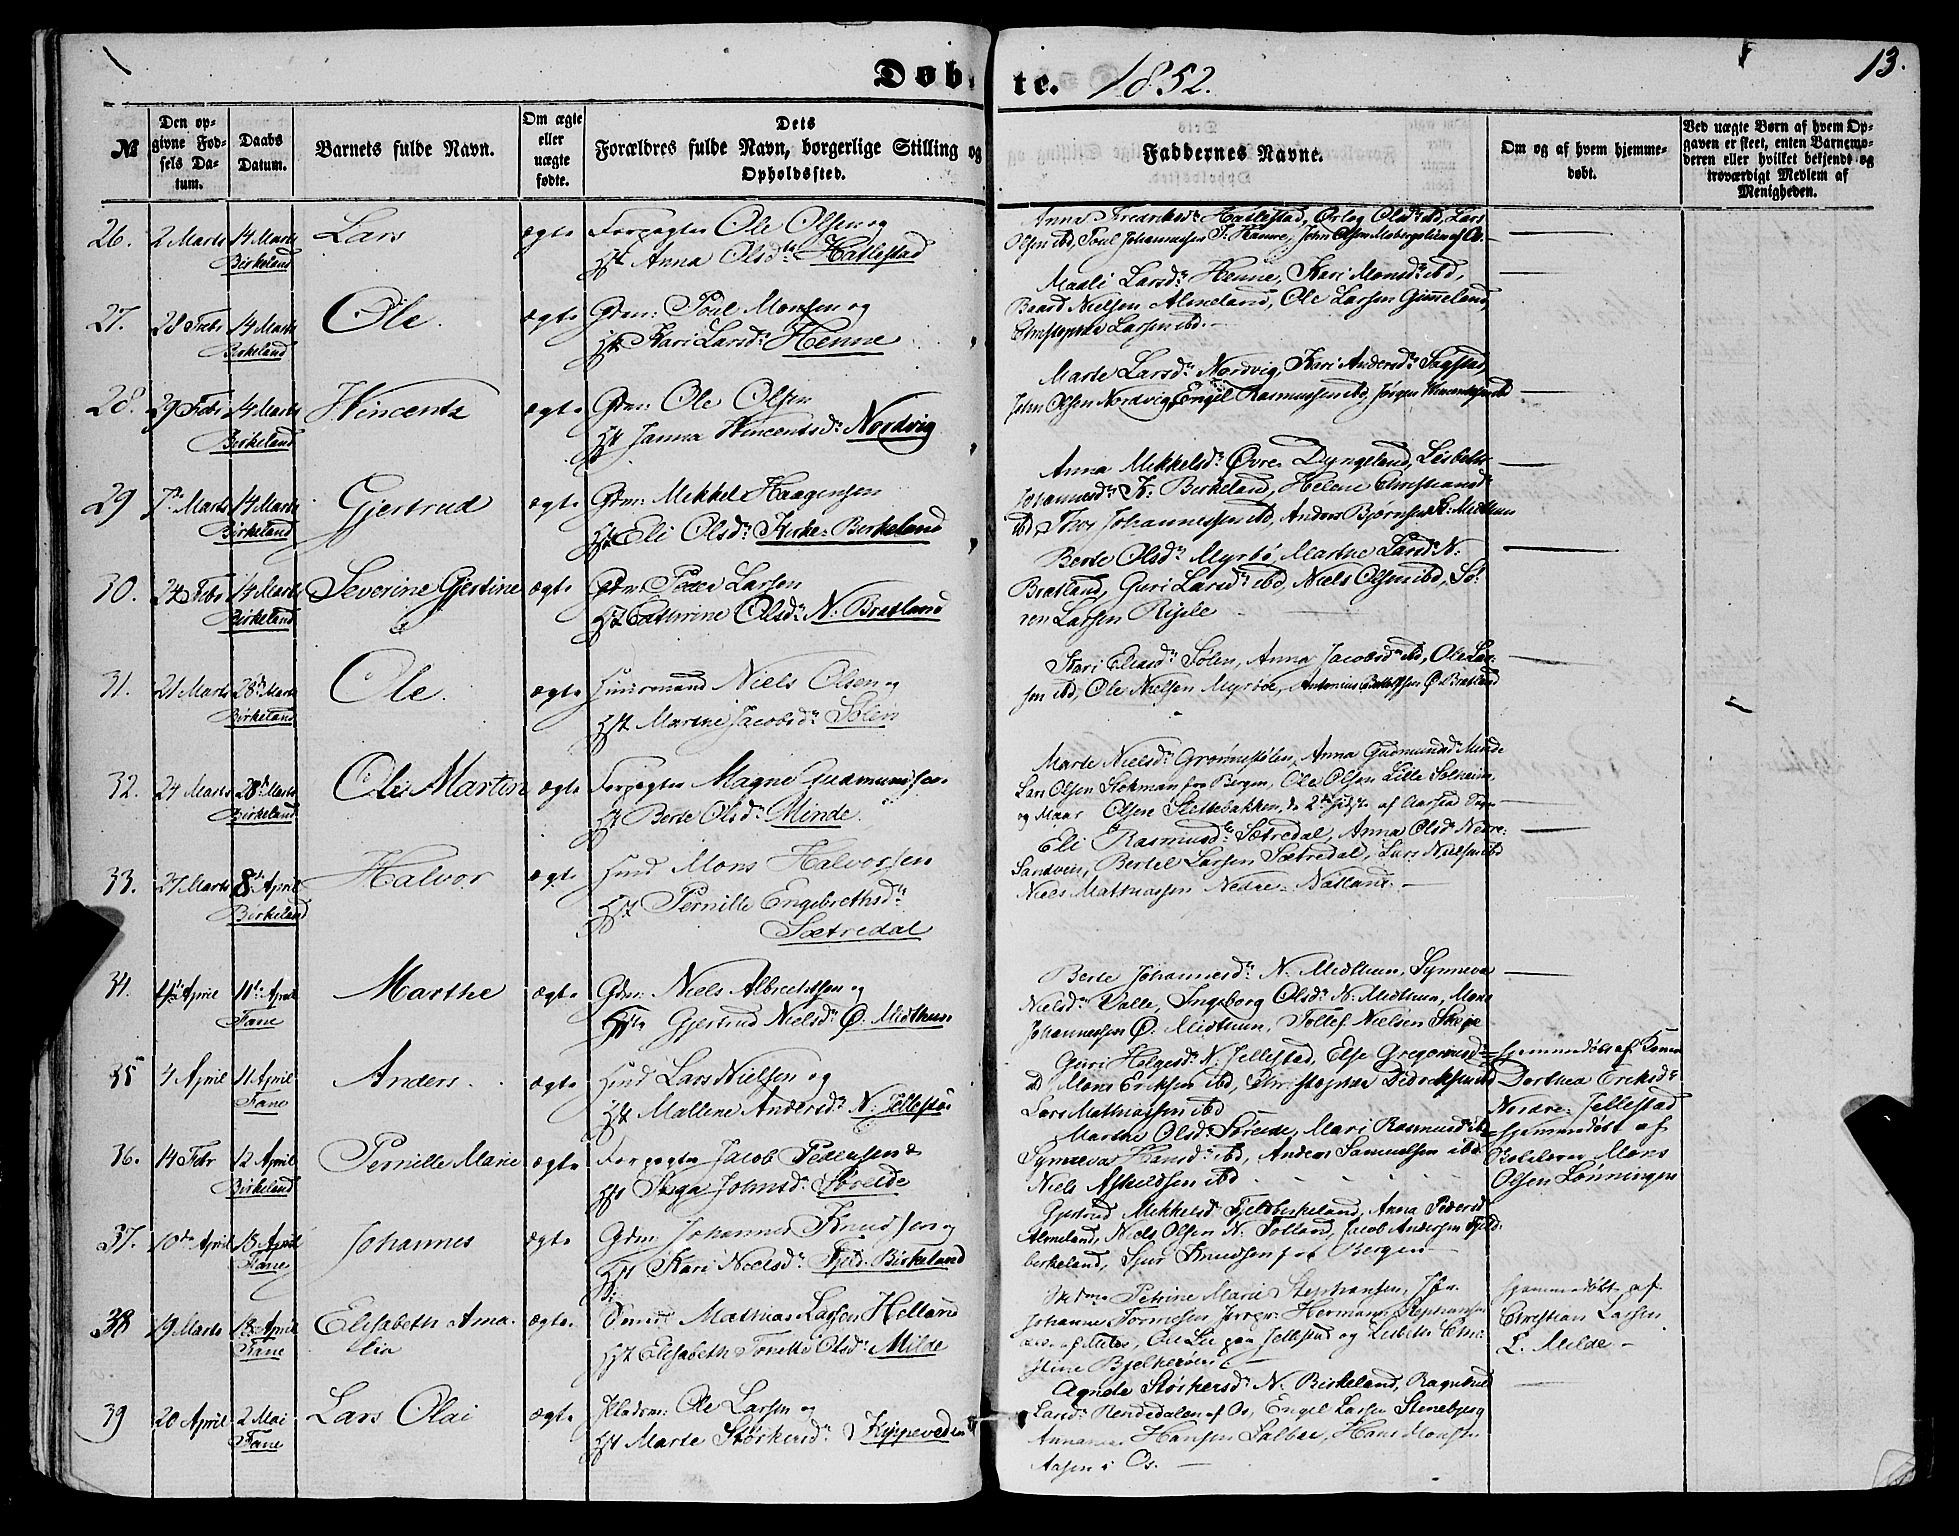 Døbte. 1852.
13.
№
Den opgivne Fødsels Datum.
Daabs Datum.
Barnets fulde Navn.
Om ægte eller uægte fødte.
Dets Forældres fulde Navn, borgerlige Stilling og Opholdssted.
Faddernes Navne.
Om og af hvem hjemmedøbt.
Ved uægte Børn af hvem Opgaven er skeet, enten Barnemoderen eller hvilket bekjendt og troværdigt Medlem af Menigheden.
26. 2 Marts 14 Marts Birkeland Lars ægte Forpagter Ole Olsen og
Hst Anna Olsdr Hatlestad
Olsen ibd, Poul Johannesen
27. 28 Febr 14 Marts Birkeland Ole. ægte Gdm: Poul Monsen og
Hst Kari Larsdr Henne
Maali Larsdr Henne, Kari Monsdr ibd,
Baard Nielsen Almeland, Ole Larsen Gimeland,
Christopher Larsen ibd.
28. 29 Febr 14 Marts Birkeland Wincents ægte Gdm: Ole Olsen
Hst Janna Wincentsdr Nordvig
Marte Larsdr Nordvig, Kari Andersdr Sagstad
John Olsen Nordvig, Engel Rasmussen ibd, Jørgen
29 7de Marts 14 Marts Birkeland Gjertrud ægte Gdm: Mikkel Haagensen
Hst Eli Olsdr Kirke-Birkeland
Anna Mikkelsdr Øvre Dyngeland, Lisbeth
Johannesdr K. Birkeland, Helene Christiansdr
ibd, Johannessen ibd, Anders Bjørnsen Midthun
30. 24 Febr 14 Marts Birkeland Severine Gjertine ægte Gdm: Peder Larsen
Hst Cathrine Olsdr N. Bratland
Berte Olsdr Myrbø, Marthe Larsdr N.
Bratland, Guri Larsdr ibd, Niels Olsen ibd, Sø-
ren Larsen
31. 21 Marts 28de Marts Birkeland Ole. ægte Huusmand Niels Olsen og
Hst Marthe Jacobsdr Sølen
Kari Eliasdr Sølen, Anna Jacobsdr ibd, Ole Lar-
sen ibd, Ole Nielsen Myrbøe, Antonius Ø. Bratland
32. 24 Marts 28de Marts Birkeland Ole Martin ægte Forpagter Magne Gudmundsen
Hst Berte Olsdr Minde.
Marte Nielsdr Grønnestølen, Anna Gudmundsdr Minde
Lars Olsen fra Bergen, Ole Olsen Lille Solheim
og Olsen Slettebakken,
33. 27 Marts 8de April Birkeland Halvor ægte Huusmd Mons Halvorsen
Hst Pernille Engebrethsdr
Sætredal
Eli Rasmusdr Sætredal, Anna Olsdr Nedre-
Sandven, Bertel Larsen Sætredal, Lars Nielsen ibd
Niels Mathiassen Nedre-Natland.
34. 4de April 11te April Fane Marthe ægte Gdm: Niels Albrechtsen og
Hst Gjertrud Nielsdr Ø. Midthun
Berte Johannesdr N. Midthun, Synneva
Nielsdr Valle, Ingeborg Olsdr N. Midthun, Mons
Johannessen Ø. Midthun, Tollef Nielsen Skeje
35 4 April 11 April Fane Anders. ægte Huusmd Lars Nielsen og
Hst Mallene Andersdr N. Jellestad
Guri Helgesdr N. Jellestad, Else Gregoriusdr
ibd, Mons Eriksen ibd, Christopher Didriksen ibd
Lars Mathiassen ibd
Hjemmedøbt af Konen
Dorthea Eriksdr
Nordre-Jellestad
36. 14 Febr 12 April Birkeland Pernille Marie ægte Forpagter Jacob Pedersen &
Hst Johnsdr Søreide
Marthe Olsdr Søreide, Mari Rasmusdr ibd
Synneva Hansdr ibd, Anders Samuelsen ibd
Niels Askildsen ibd
Hjemmedøbt af
Skoleholder Mons
Olsen Lønningen
37. 10de April 18 April Fane Johannes ægte Gdm: Johannes Knudsen og
Hst Kari Nielsdr Fjeld-Birkeland
Gjertrud Mikkelsdr Fjeldbirkeland, Anna Pedersdr
Almeland, Niels Olsen N. Tolland, Jacob Andersen Fjeld-
berkeland, Sjur Knudsen fra Bergen
38 19 Marts 18 April Fane Elisabeth Ama-
lia ægte Mathias Larsen Helland
Hst Elisabeth Tonette Olsdr Milde
Petrine Marie Stephansen, Jfr.
Johanne Herman Stephansen
paa Jellestad og Lisbeth Chri-
stine
Hjemmedøbt af
Christian Larsen
L. Milde
39 20 April 2 Mai Fane Lars Olai ægte Ole Larsen og
Hst Marte Størkersdr Kippeveden
Agnete Størkersdr N. Birkeland, Ragnhild
Larsdr Rendedalen af Os, Engel Larsen Stenebjerg
Hansen Salbu, Hans Monsen
Aasen i Os.